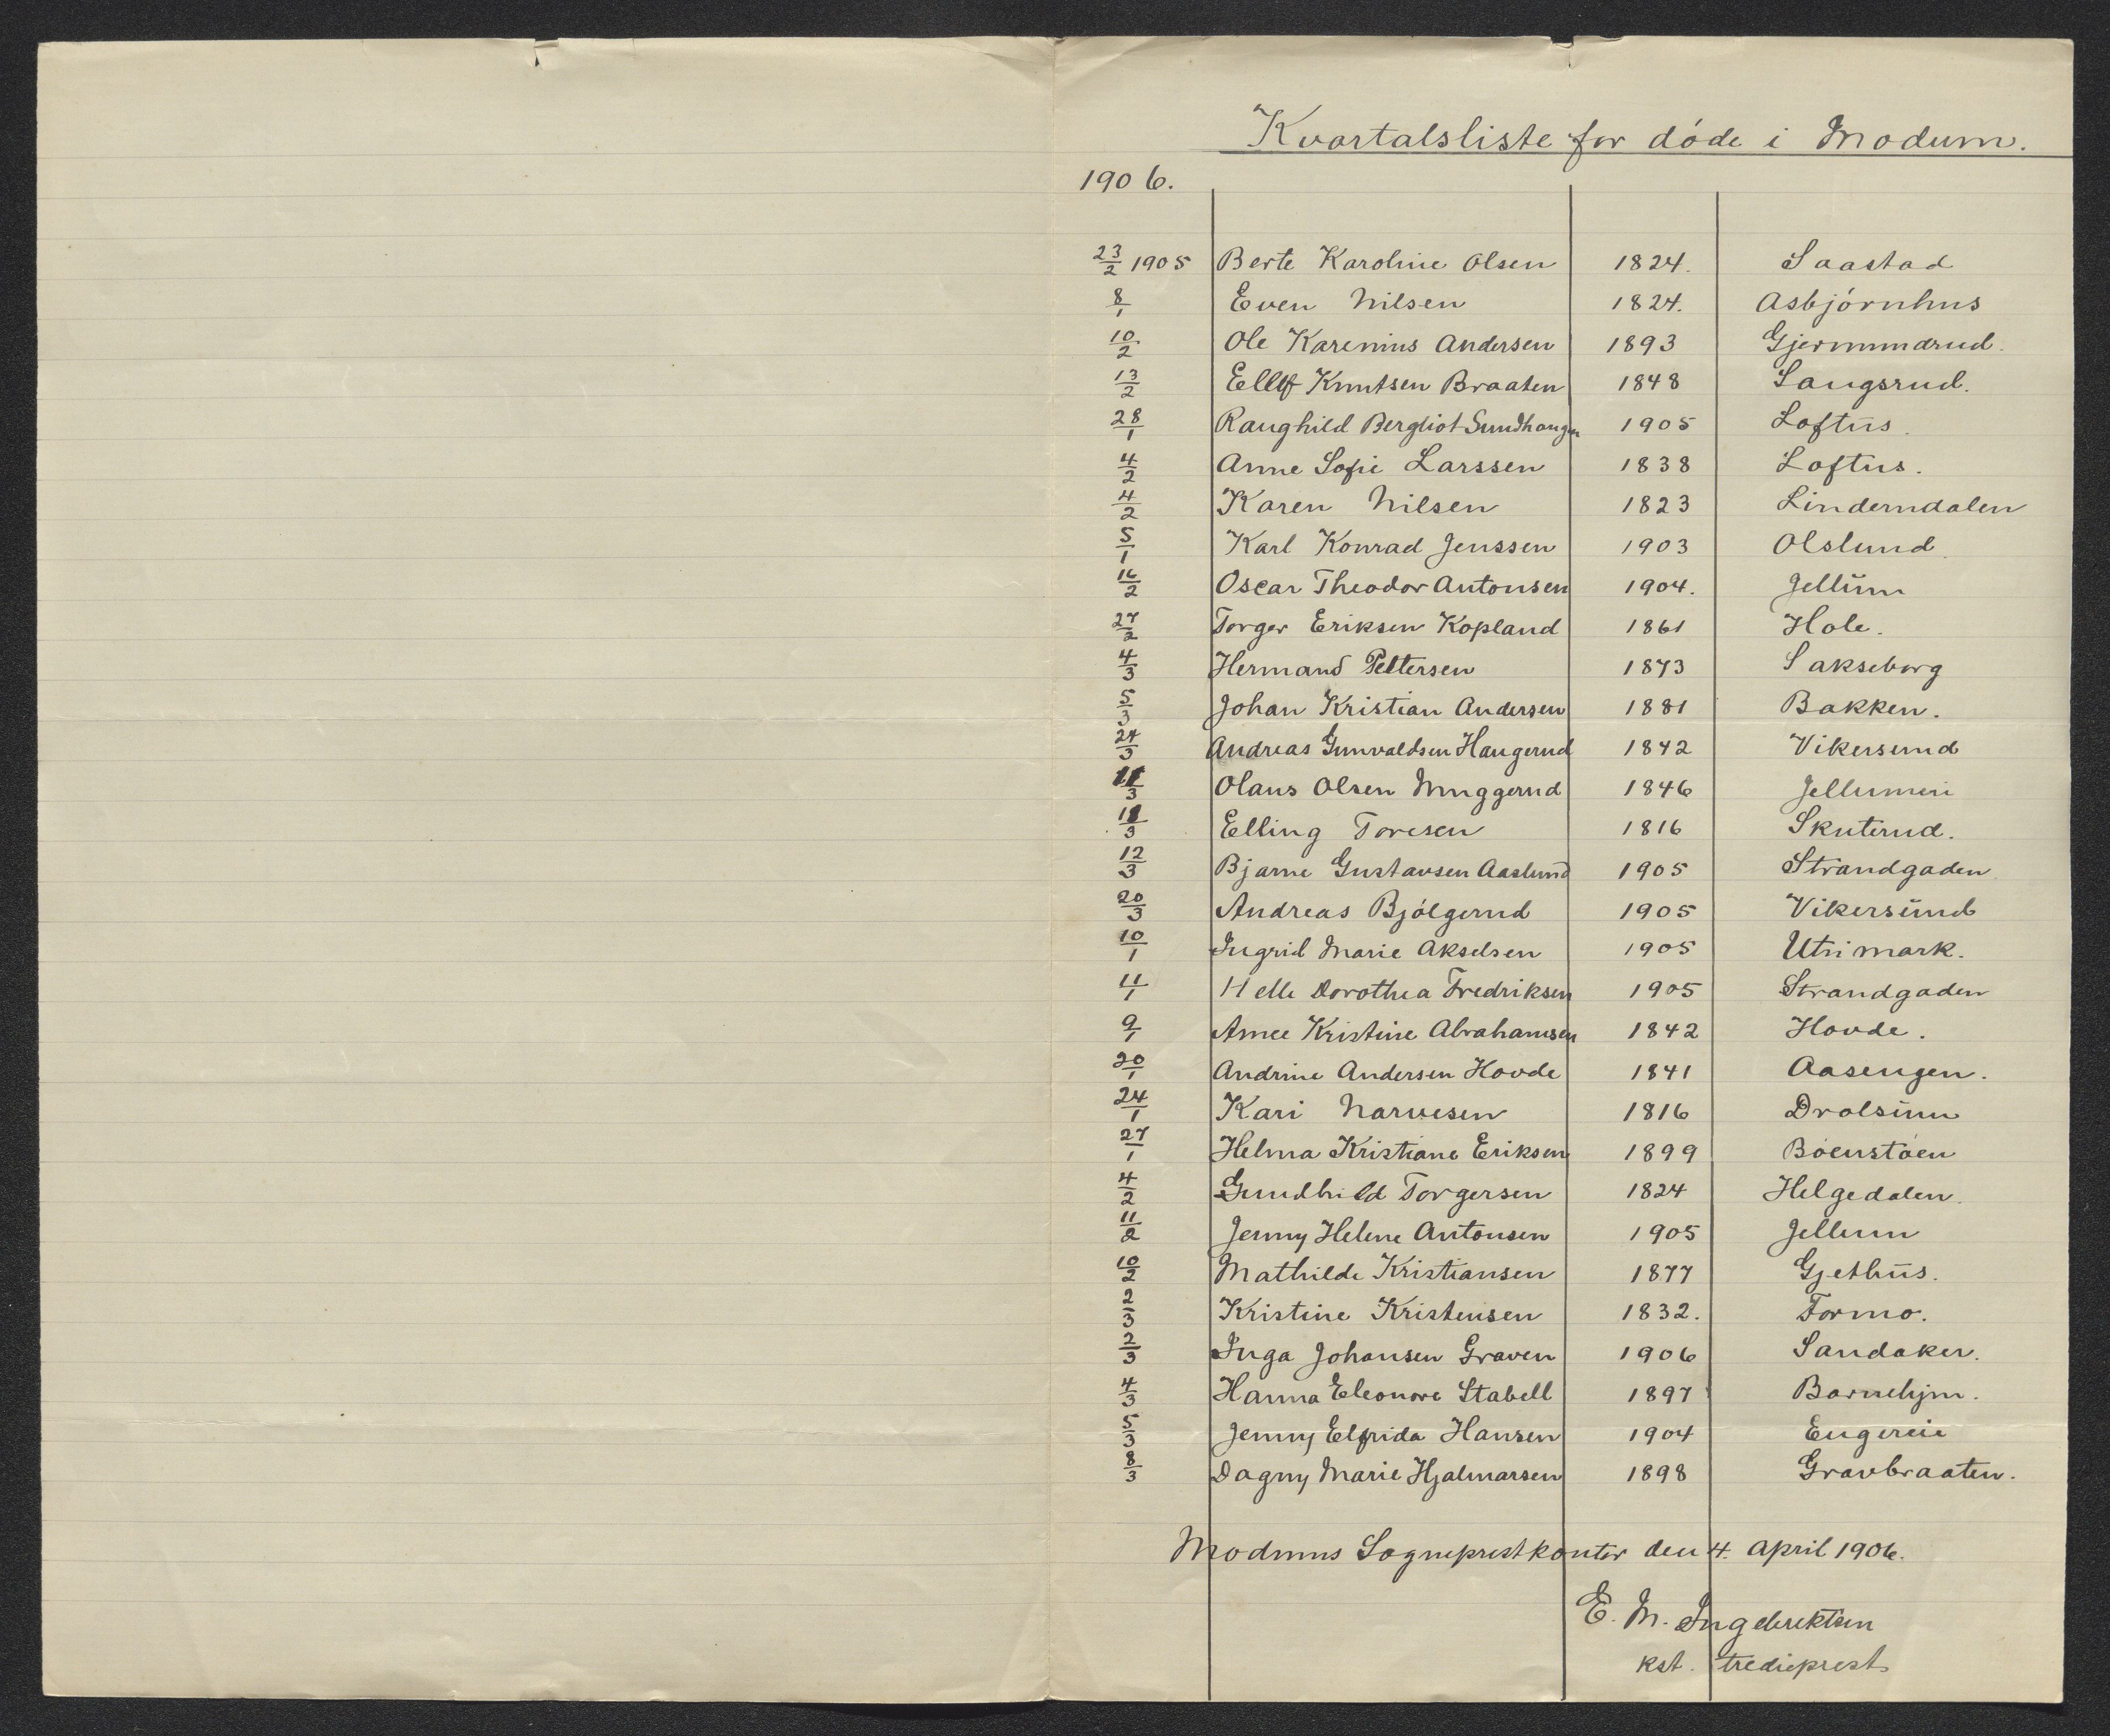 Kvartalsliste for døde i Modum.
1906.
23/2 1905 Berte Karoline Olsen 1824. Saastad
8/1 Even Nilsen 1824. Asbjørnhus
10/2 Ole Karenius Andersen 1893 Gjermundrud.
13/2 Ellef Knutsen Braaten 1848 Langsrud.
28/1 Raughild Bergliot Sundhaugen 1905 Loftus.
4/2 Anne Sofie Larssen 1838 Loftus.
4/2 Karen Nilsen 1823 Linderndalen
5/1 Karl Konrad Jenssen 1903 Olslund.
16/2 Oscar Theodor Antonsen 1904. Jellum
27/2 Torger Eriksen Kopland 1861 Hole.
4/3 Hermand Pettersen 1873 Sakseborg
5/3 Johan Kristian Andersen 1881 Bakken.
24/3 Andreas Gunvaldsen Haugerud 1842 Vikersund
11/3 Olaus Olsen Muggerud 1846 Jellumeie
18/3 Elling Toresen 1816 Skuterud.
12/3 Bjarne Gustavsen Aaslund 1905 Strandgaden.
20/3 Andreas Bjølgerud 1905 Vikersund
10/1 Ingrid Marie Akselsen 1905 Utnimark.
11/1 Helle Dorothea Fredriksen 1905 Strandgaden
9/1 Anne Kristine Abrahamsen 1842 Hovde.
20/1 Andrine Andersen Hovde 1841 Aasengen.
24/1 Kari Narvesen 1816 Drolsum
27/1 Helma Kristiane Eriksen 1899 Bøenstøen
4/2 Gundhild Torgersen 1824 Helgedalen.
11/2 Jenny Helene Antonsen 1905 Jellum
10/2 Mathilde Kristiansen 1877 Gjethus.
2/3 Kristine Kristensen 1832. Formo.
2/3 Inga Johansen Graven 1906 Sandaker.
4/3 Hanna Eleonore Stabell 1897 Barnehjm.
5/3 Jenny Elfrida Hansen 1904 Engereie
8/3 Dagny Marie Hjalmarsen 1898 Gravbraaten.
Modums Sogneprestkontor den 4. April 1906.
E. M. Ingebrektsen
kst. tredieprest